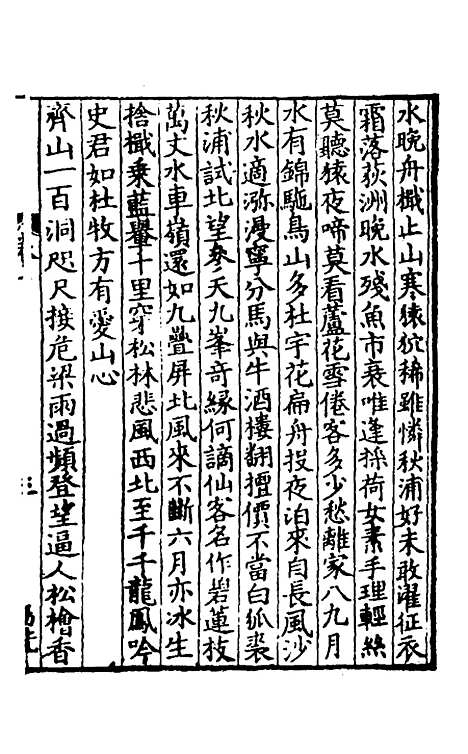 水晚舟檥止山寒猿狖稀雖憐秋浦好未敢濯征衣
霜落荻洲晚水殘魚市衰唯逢採荷女素手理輕絲
莫聽猿夜啼莫看蘆花雪倦客多少愁離家八九月
水有錦駞鳥山多杜宇花扁舟投夜泊來自長風沙
秋水適瀰漫寧分馬與牛酒樓翻擅價不當白狐裘
秋浦試北望參天九峯奇緣何謫仙客名作碧蓮枝
萬丈水車嶺還如九疊屏北風來不斷六月亦冰生
捨檥乗藍轝十里穿松林悲風西北至千千龍鳳吟
史君如杜牧方有愛山心
齊山一百洞咫尺接危梁雨過頻登望逼人松檜香